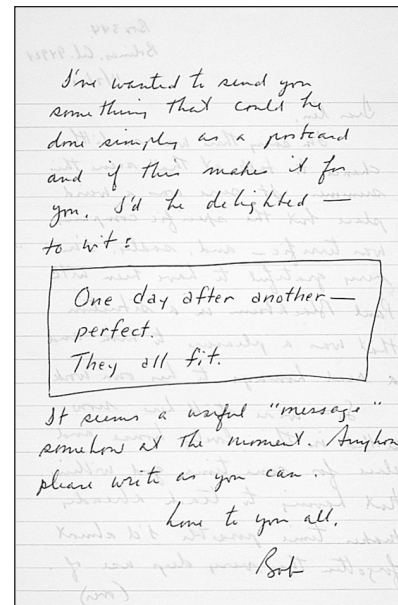 I've wanted to send you
something that could be
done simply as a postcard
and if this makes it for
you, I'd be delighted —
to wit:
One day after another—
perfect.
They all fit.
It seems a useful "message"
somehow at the moment. Anyhow
please write as you can.
Love to you all,
Bob